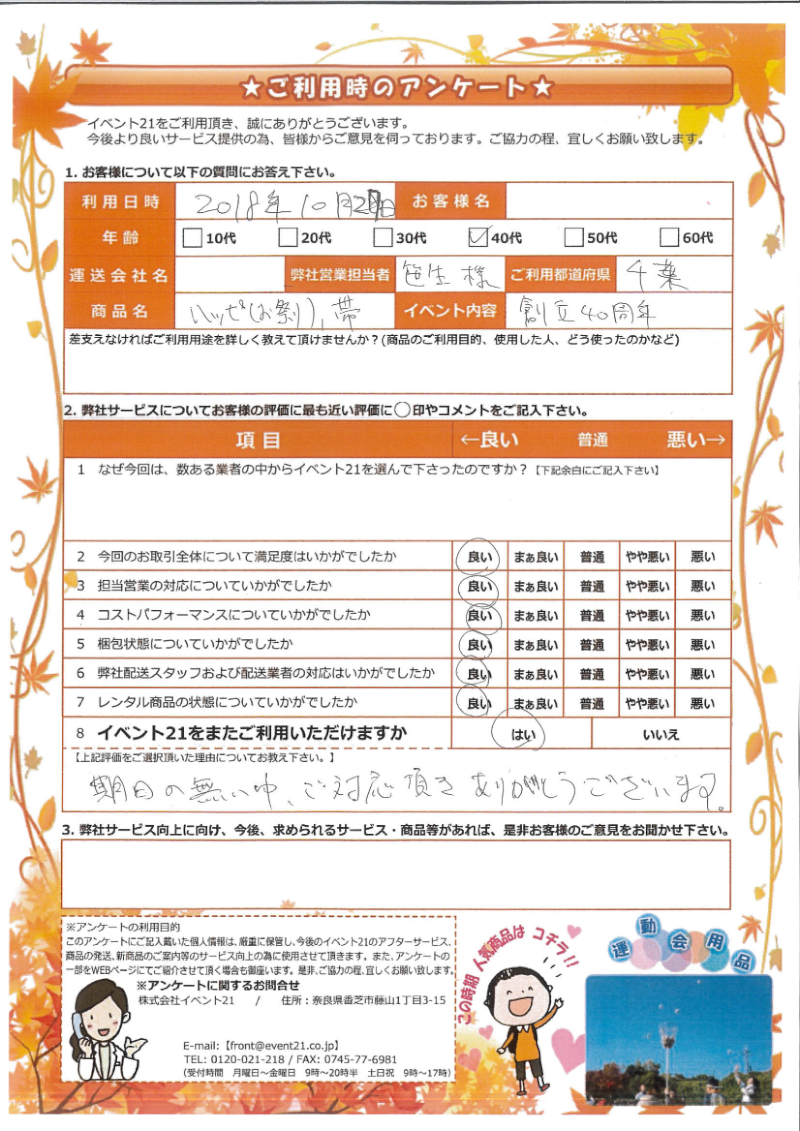 ★ご利用時のアンケート★
イベント21をご利用頂き、誠にありがとうございます。
今後より良いサービス提供の為、皆様からご意見を伺っております。ご協力の程、宜しくお願い致します。
1. お客様について以下の質問にお答え下さい。
利用日時 2018年10月2日 お客様名
年齢 10代 20代 30代 40代 50代 60代
運送会社名 弊社営業担当者 笹生様 ご利用都道府県 千葉
商品名 ハッピ(お祭り),帯 イベント内容 創立40周年
差支えなければご利用用途を詳しく教えて頂けませんか?(商品のご利用目的、使用した人、どう使ったのかなど)
2. 弊社サービスについてお客様の評価に最も近い評価に○印やコメントをご記入下さい。
項目 ←良い 普通 悪い→
1 なぜ今回は、数ある業者の中からイベント21を選んで下さったのですか?【下記余白にご記入下さい】
2 今回のお取引全体について満足度はいかがでしたか 良い まぁ良い 普通 やや悪い 悪い
3 担当営業の対応についていかがでしたか 良い まぁ良い 普通 やや悪い 悪い
4 コストパフォーマンスについていかがでしたか 良い まぁ良い 普通 やや悪い 悪い
5 梱包状態についていかがでしたか 良い まぁ良い 普通 やや悪い 悪い
6 弊社配送スタッフおよび配送業者の対応はいかがでしたか 良い まぁ良い 普通 やや悪い 悪い
7 レンタル商品の状態についていかがでしたか 良い まぁ良い 普通 やや悪い 悪い
8 イベント21をまたご利用いただけますか はい いいえ
【上記評価をご選択頂いた理由についてお教え下さい。】
期日の無い中、ご対応頂きありがとうございます。
3. 弊社サービス向上に向け、今後、求められるサービス・商品等があれば、是非お客様のご意見をお聞かせ下さい。
※アンケートの利用目的
このアンケートにご記入戴いた個人情報は、厳重に保管し、今後のイベント21のアフターサービス、
商品の発送、新商品のご案内等のサービス向上の為に使用させて頂きます。また、アンケートの
一部をWEBページにてご紹介させて頂く場合も御座います。是非、ご協力の程、宜しくお願い致します。
※アンケートに関するお問合せ
株式会社イベント21 / 住所:奈良県香芝市藤山1丁目3-15
E-mail:【front@event21.co.jp】
TEL: 0120-021-218 / FAX: 0745-77-6981
(受付時間 月曜日～金曜日 9時～20時半 土日祝 9時～17時)
この時期 人気商品は コチラ!!
運動会用品